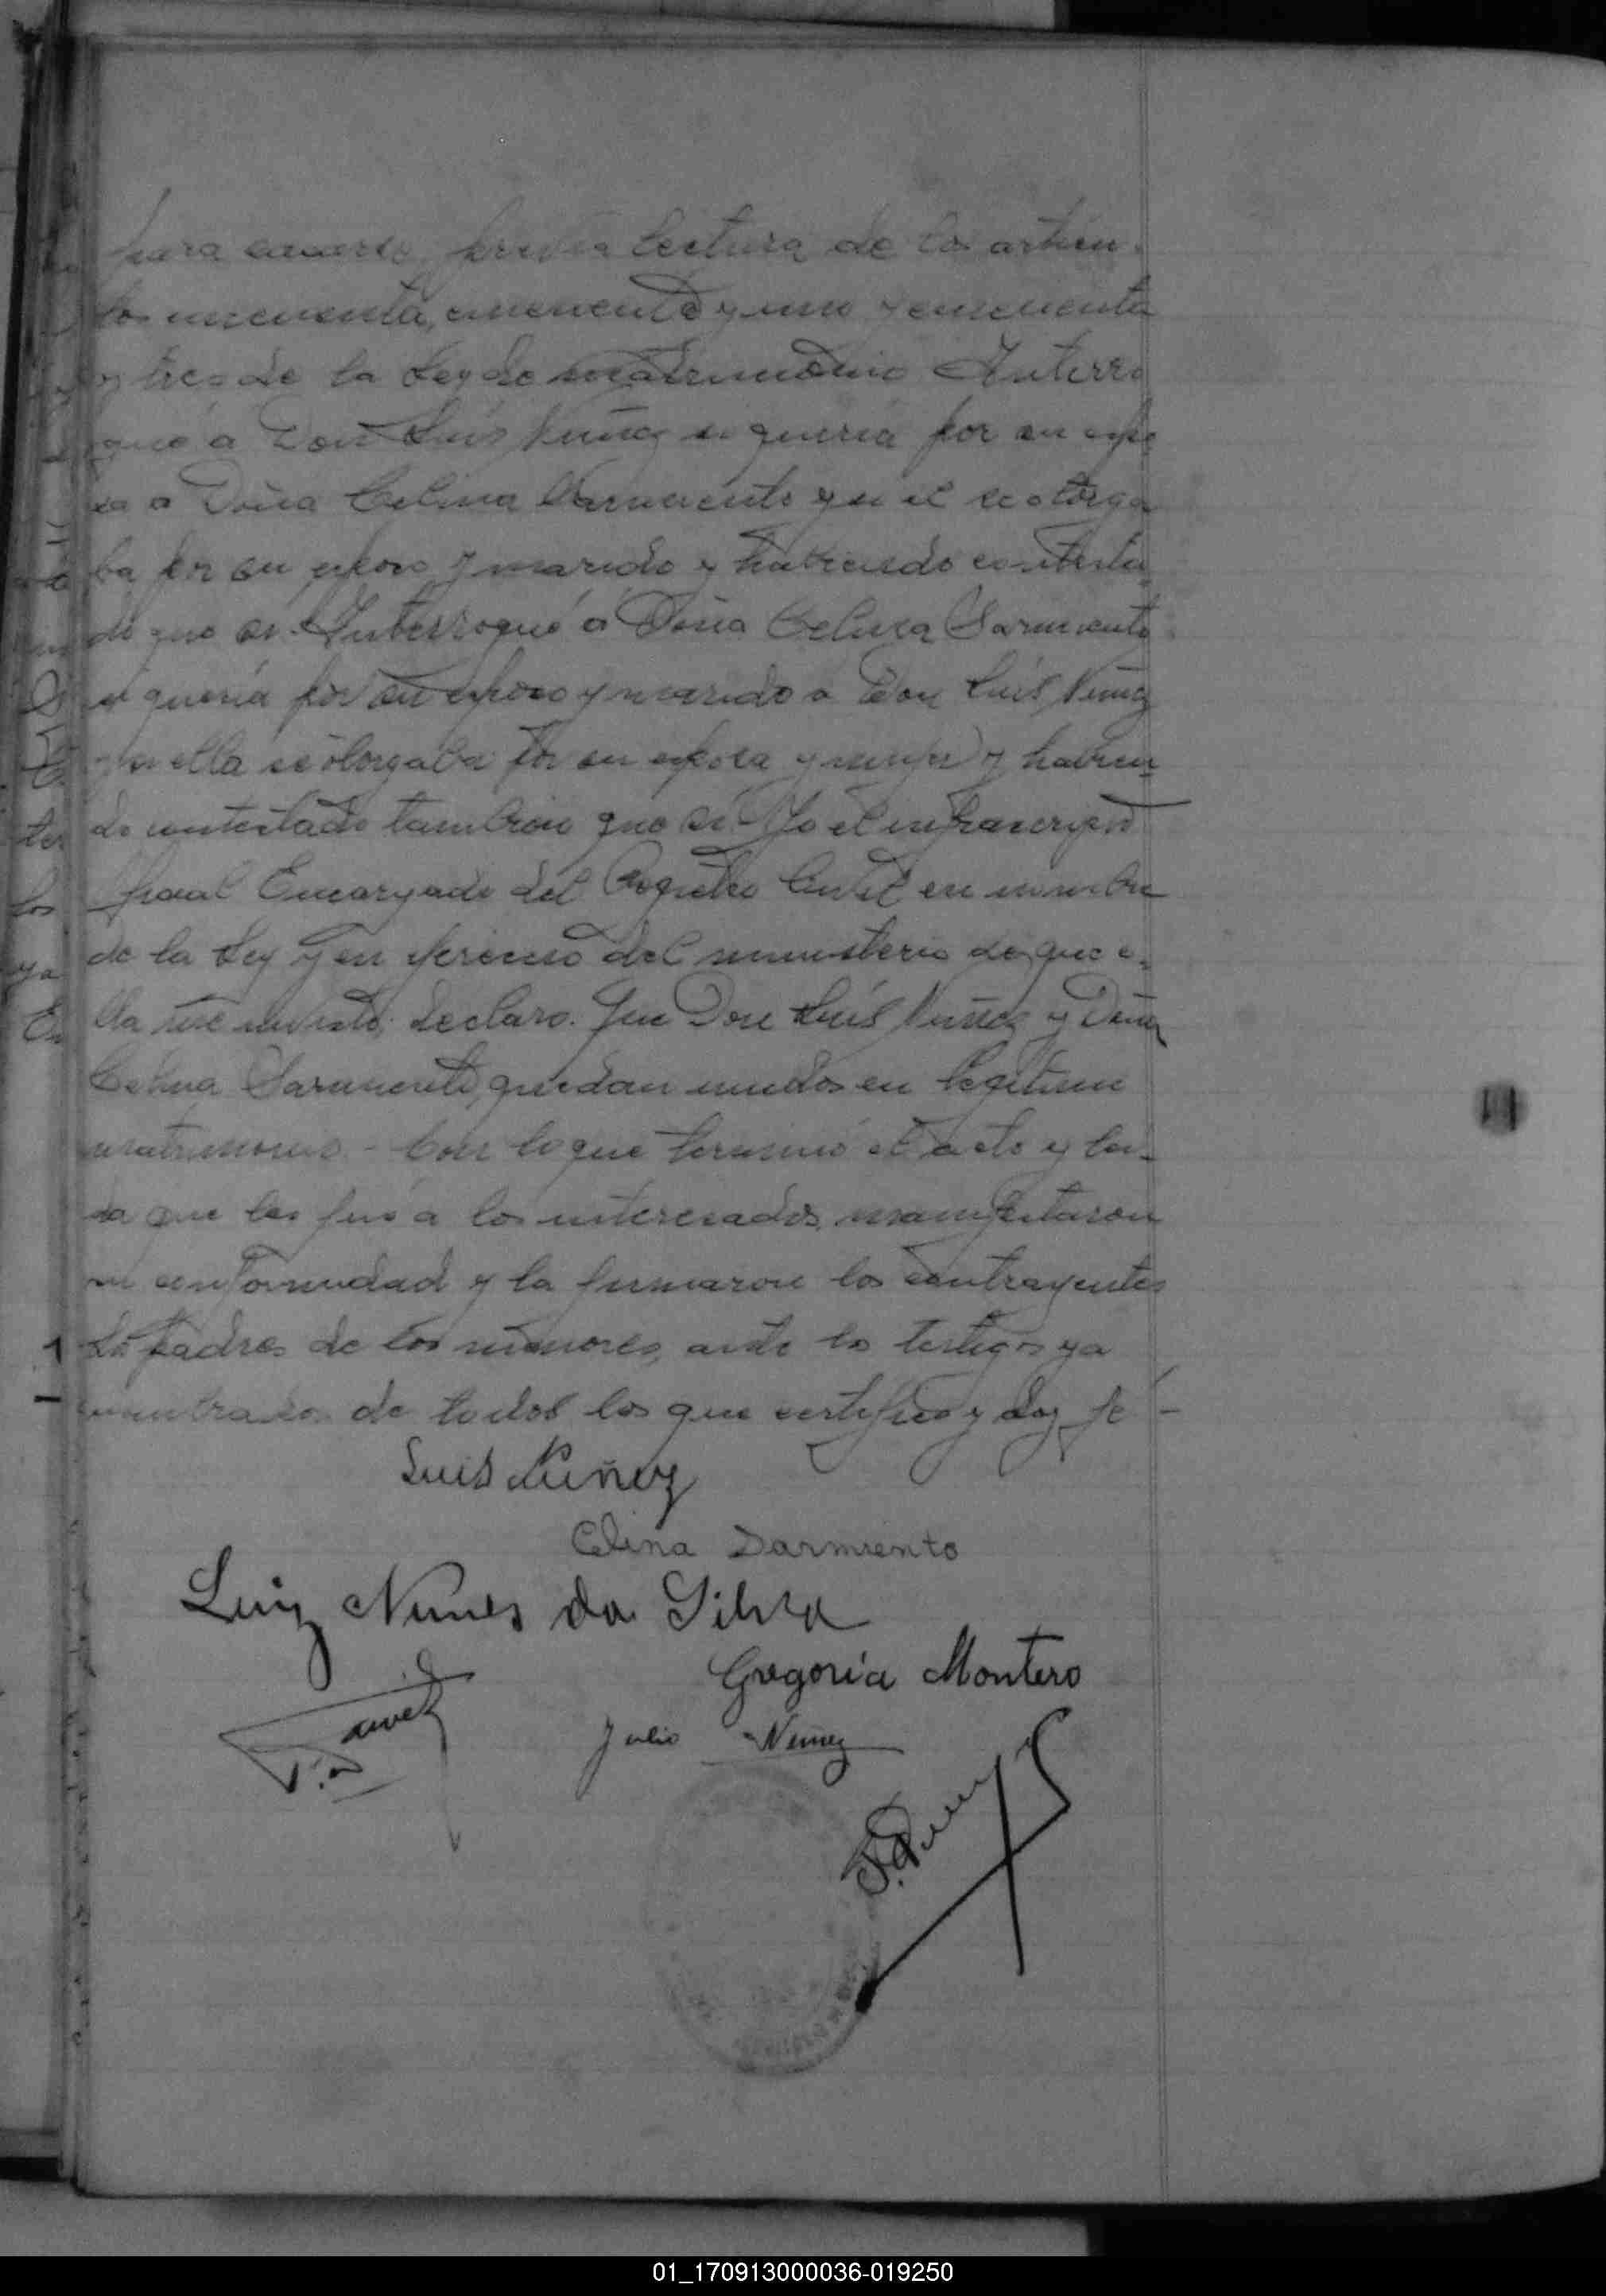 para casarse, previa lectura de los artícu-
los cincuenta, cincuenta y uno y cincuenta
y tres de la Ley de matrimonio Interro
gué á Don Luís Nuñez si quería por su espo
sa a Doña Celina Sarmiento y si el se otorga
ba por su esposo y marido y habiendo contesta
do que si. Interrogué á Doña Celina Sarmiento
si quería por su esposo y marido a Don Luís Nuñez
y si ella se otorgaba por su esposa y mujer y habien
do contestado tambien que si Yo el infrascripto
fiscal Encargado del Registro Civil en nombre
de la Ley y en ejercicio del ministerio de que e-
lla me inviste, declaro. Que Don Luís Nuñez y Doña
Celina Sarmiento, quedan unidos en legitimo
matrimonio. - Con lo que terminó el acto y lei-
da que les fué a los interesados, manifestaron
su conformidad y la firmaron los contrayentes
los padres de los menores, ante los testigos ya
nombrados de todos los que certifico y doy fe -
Luis Nuñez
Celina Sarmiento
Luiz Nunes da Silva
Gregoria Montero
Julio Nuñez
01_170913000036-019250